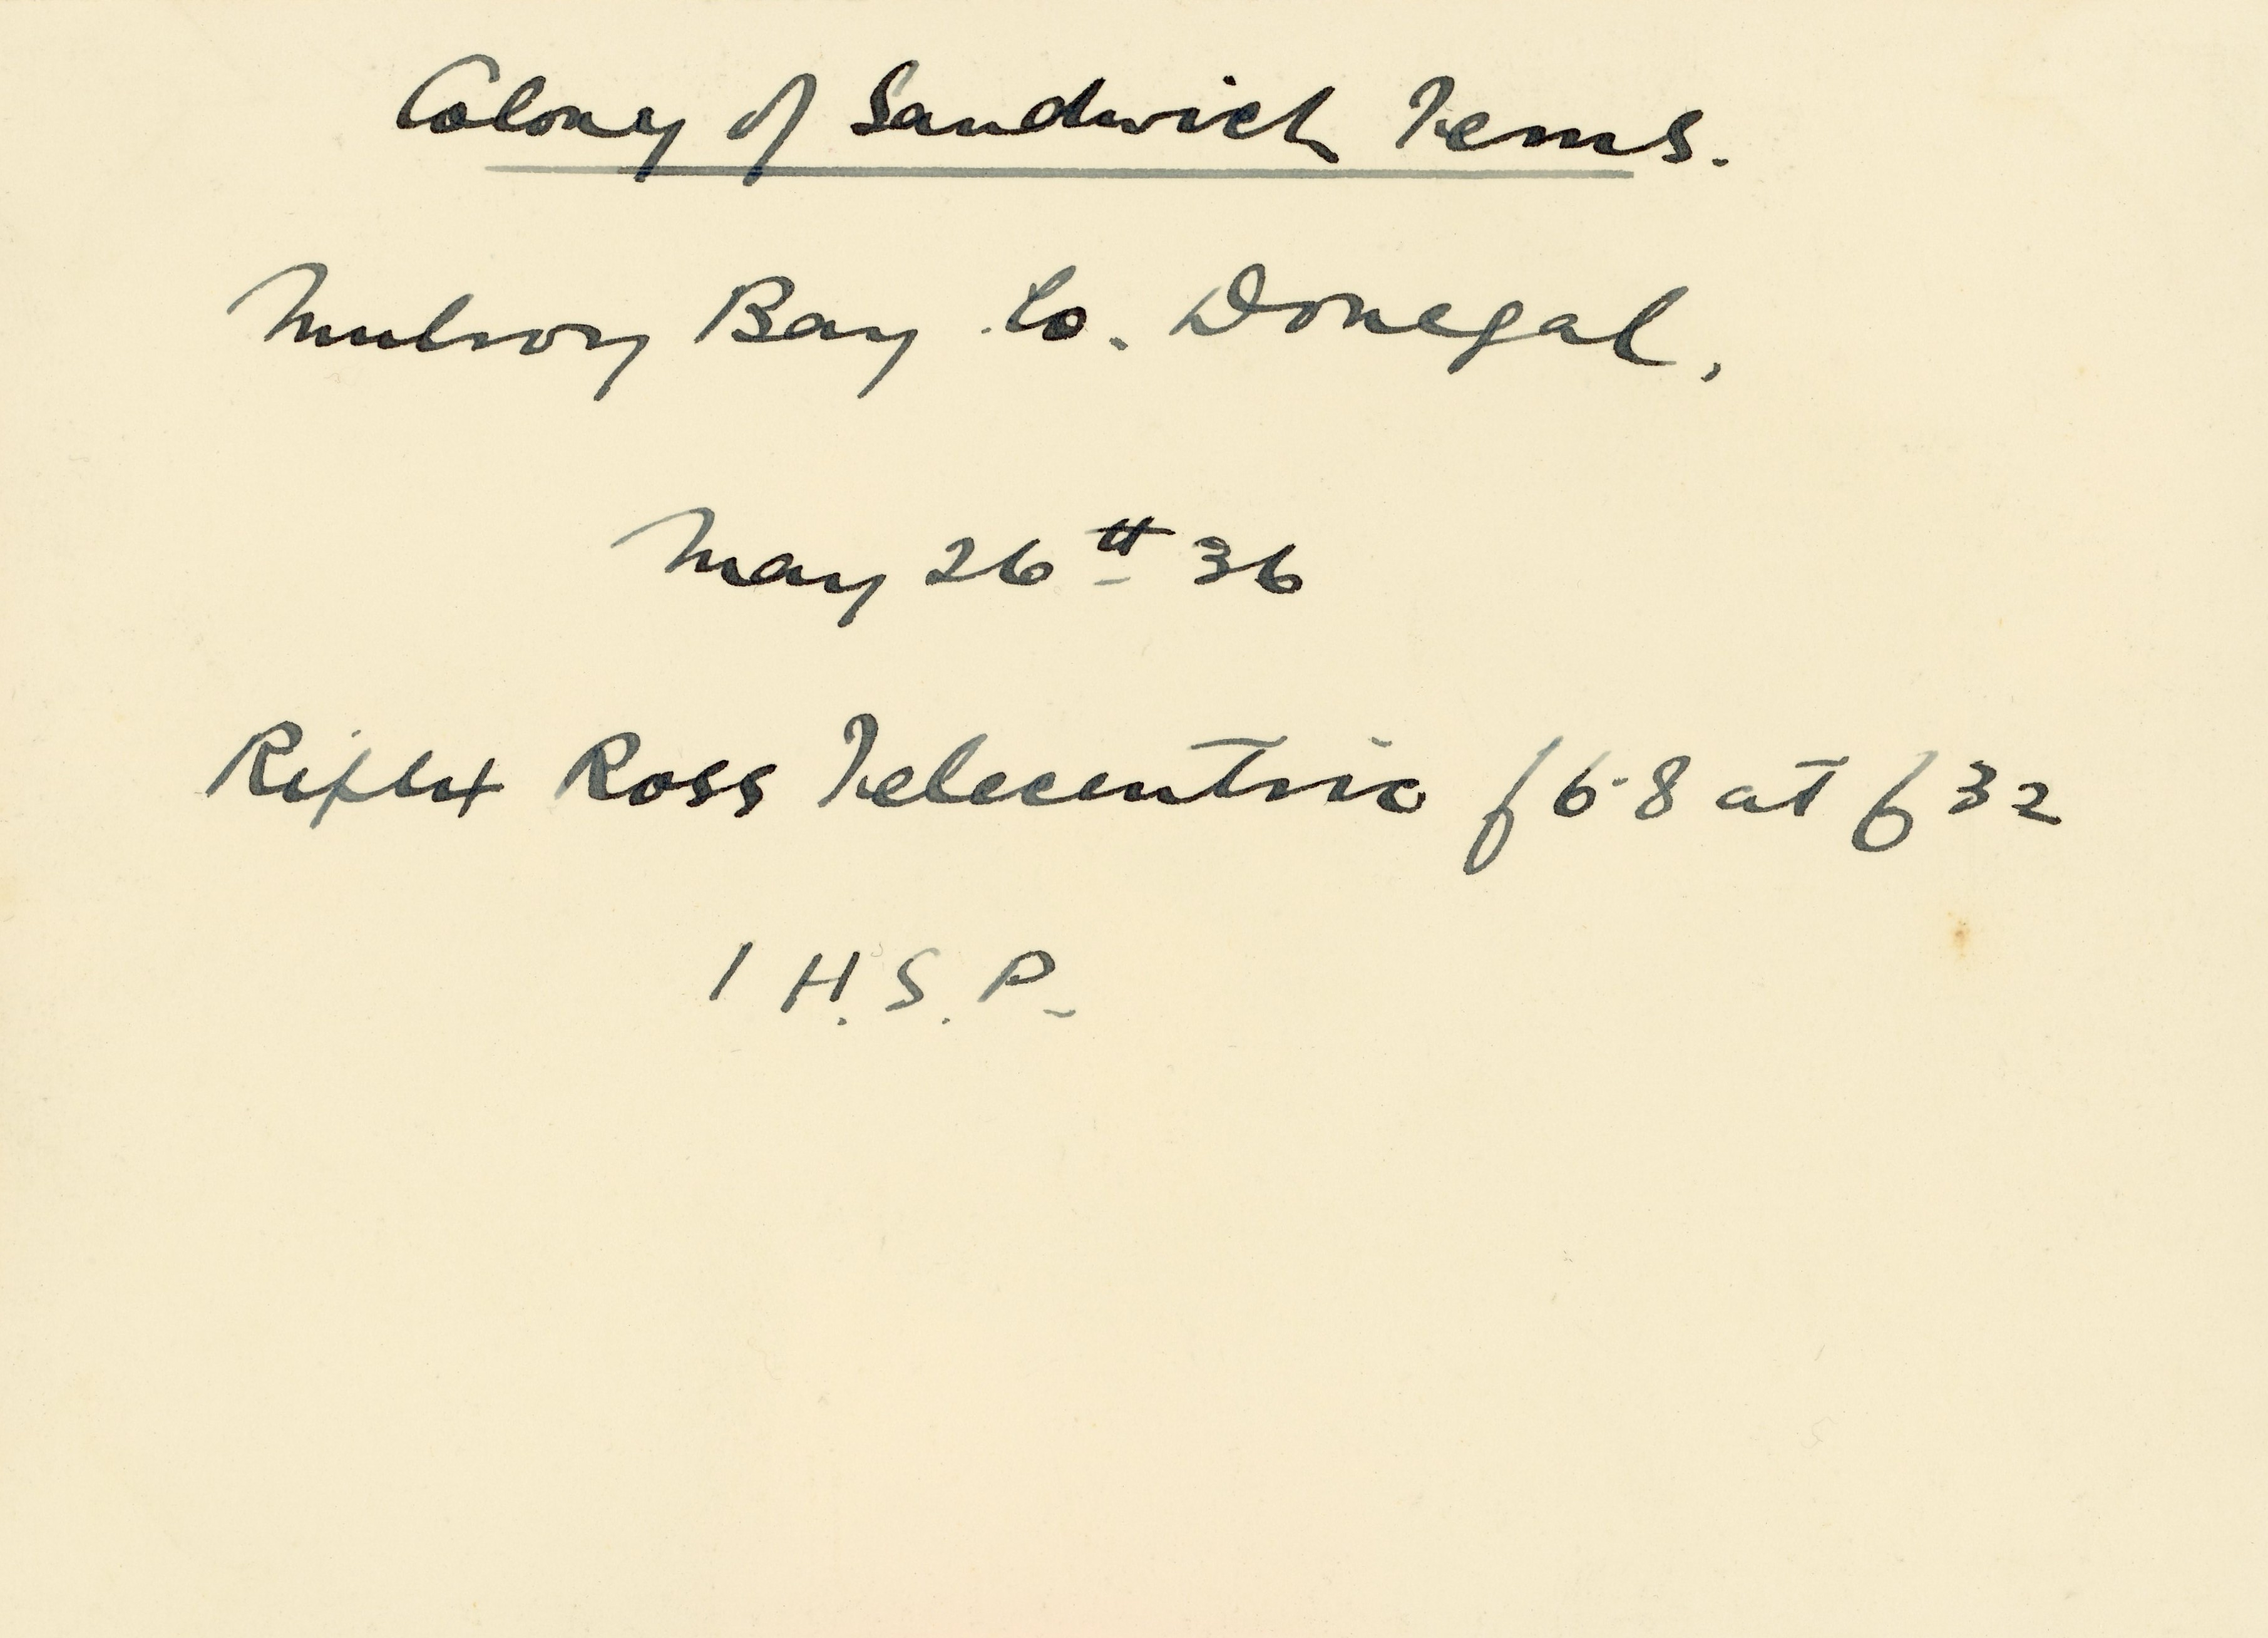 Colony of Sandwich Terns.
Mulroy Bay Co. Donegal.
May 26th 36
Reflex Ross Telecentric f 6·8 at f 32
1 H.S.P.